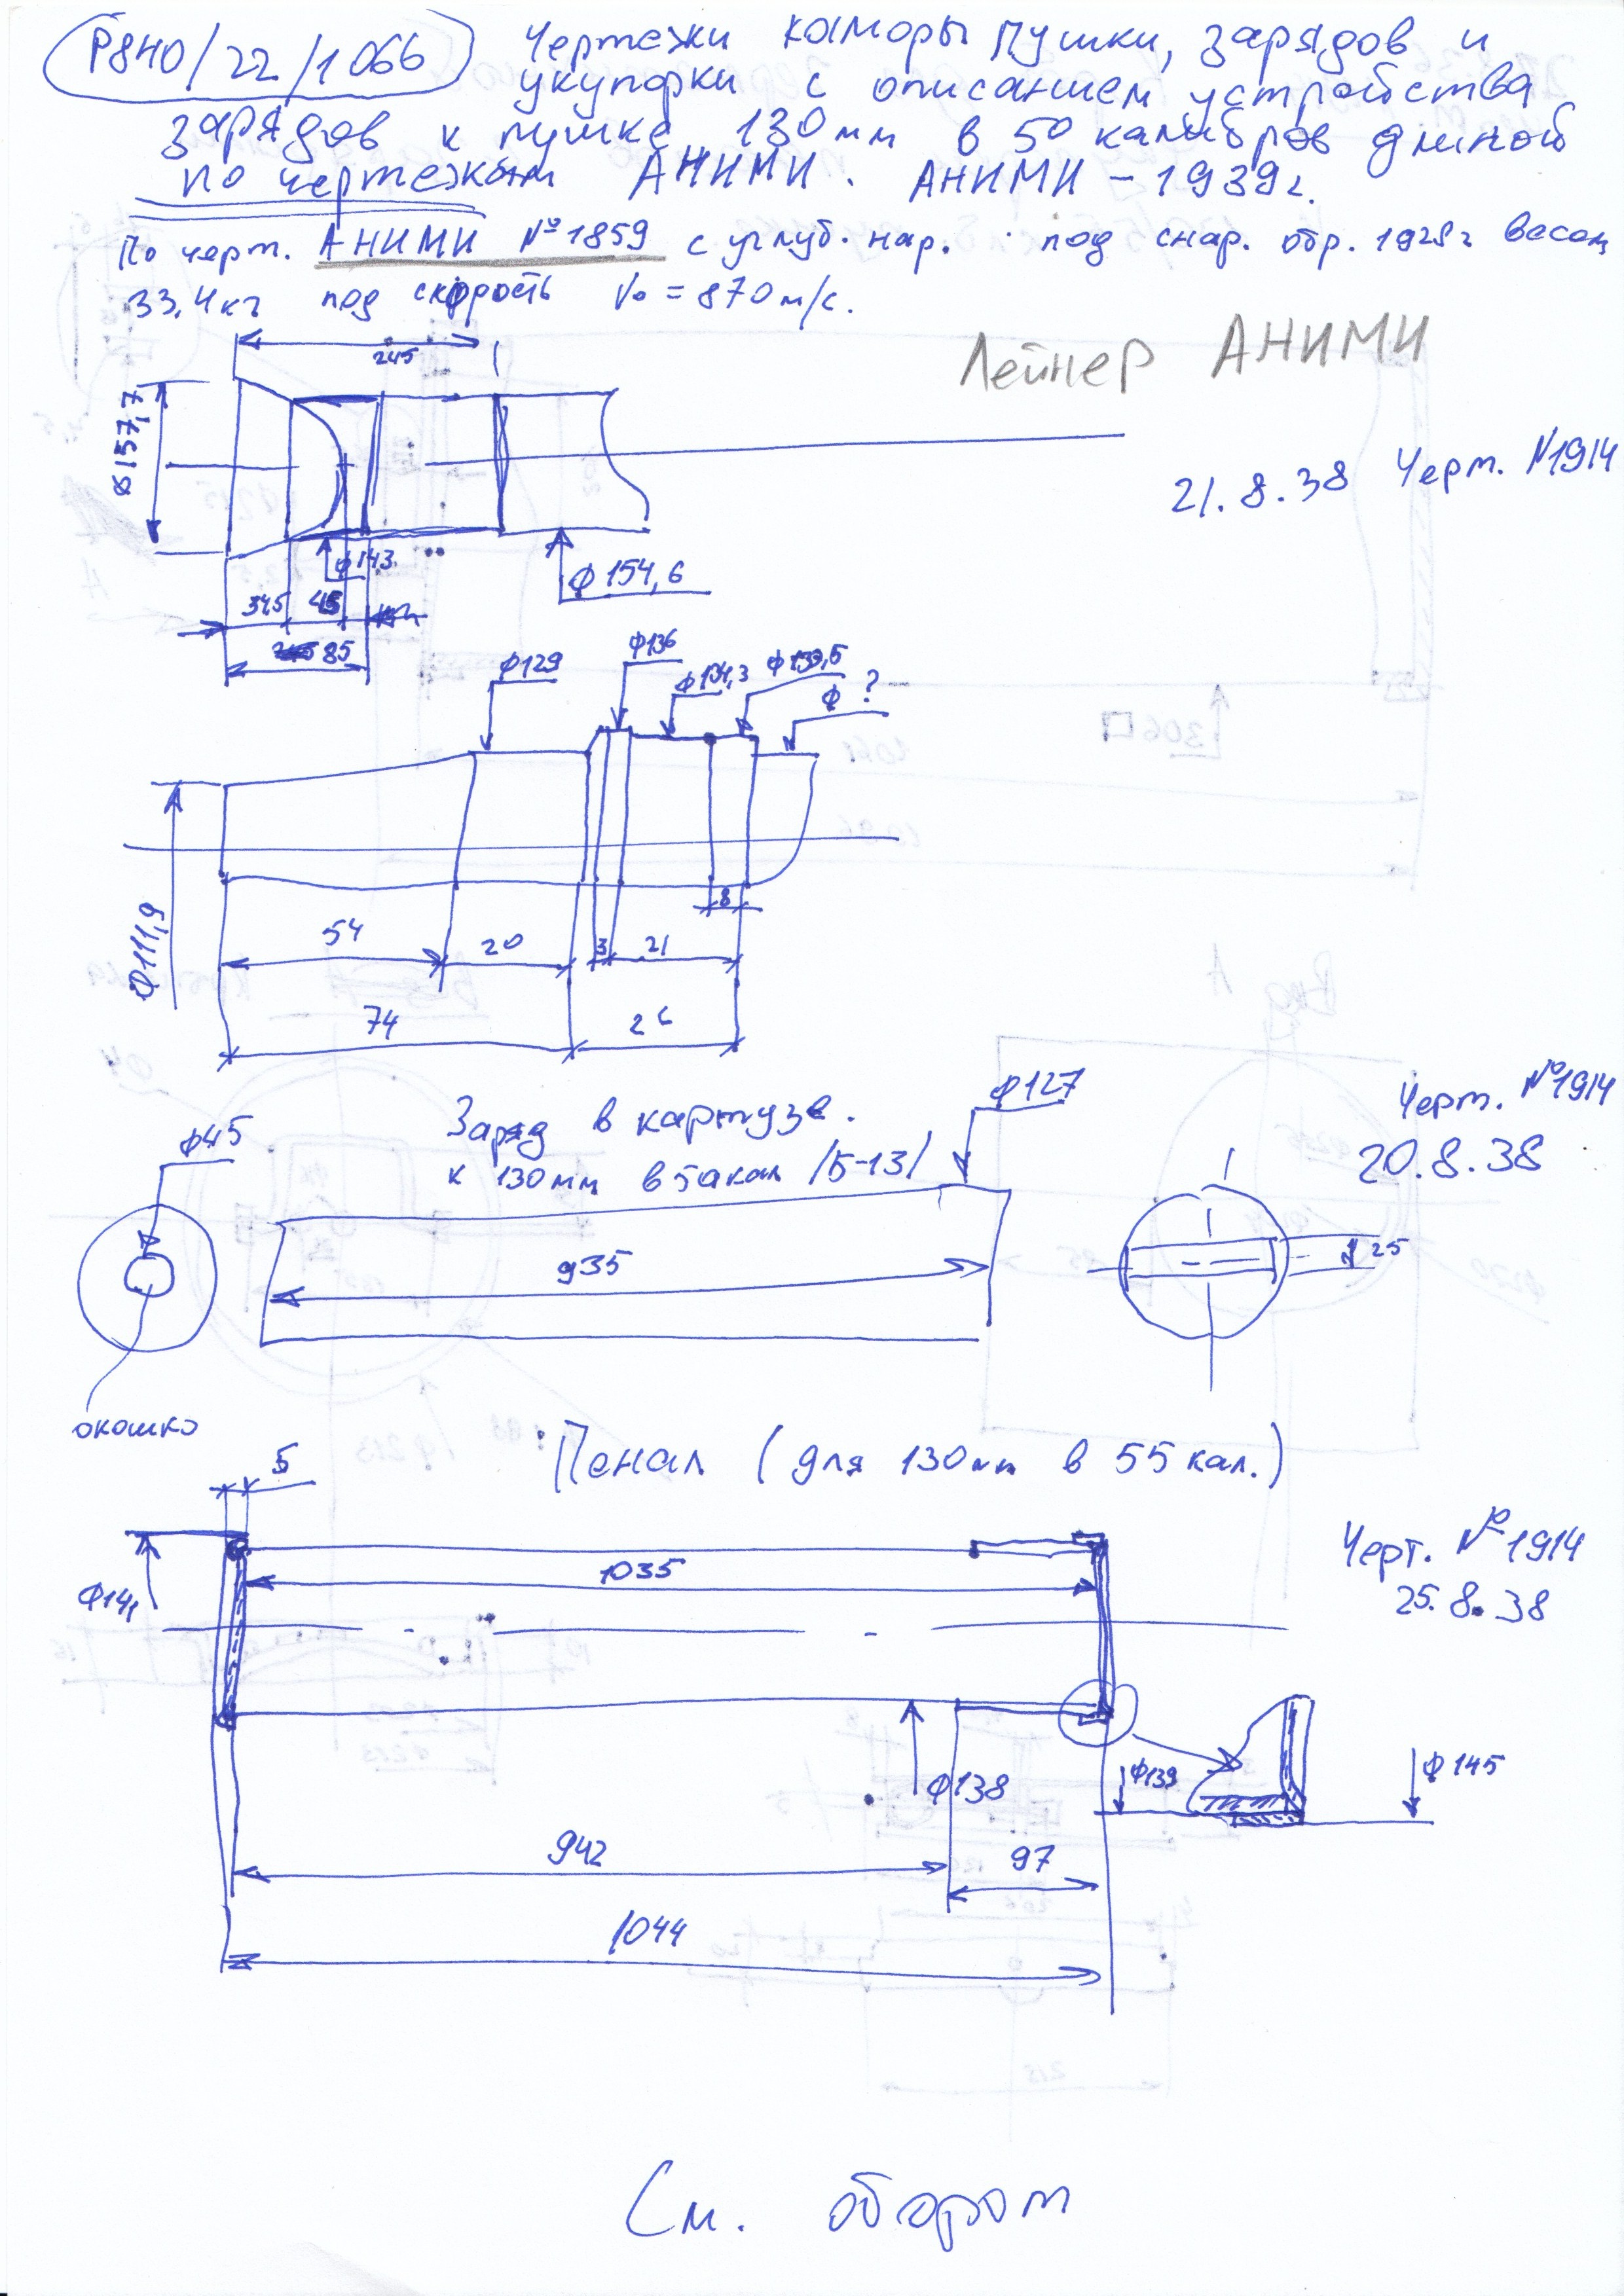 Р840/22/1066
Чертежи каморы пушки, зарядов и
укупорки с описанием устройства
зарядов к пушке 130мм в 50 калибров длиной
по чертежам АНИМИ. АНИМИ – 1939г.
По черт. АНИМИ №1859 с углуб. нар. под снар. обр. 1928г весом
33,4кг под скорость V₀ = 870м/с.
Лейнер АНИМИ
245
⌀157,7
21.8.38 Черт. №1914
ф143
ф154,6
345 45
85
ф136
ф129
ф134,3
ф133,5
ф ?
ф111,9
8
54 20 3 21
74 26
Черт. №1914
20.8.38
Заряд в картузе.
к 130мм в 5акал /Б-13/
ф127
ф45
935
25
окошко
Пенал (для 130мм в 55 кал.)
5
Черт. №1914
25.8.38
1035
ф141
ф138
ф139
ф145
942
97
1044
См. оборот